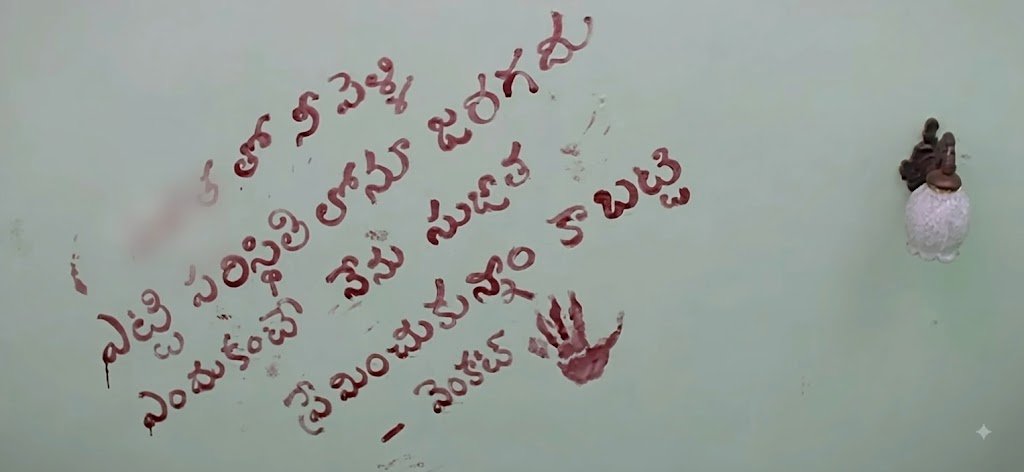 తో నీ పెళ్ళి
ఎట్టి పరిస్థితిలోనూ జరగదు
ఎందుకంటే నేను సుజాత
ప్రేమించుకున్నాం కాబట్టి
- వెంకట్